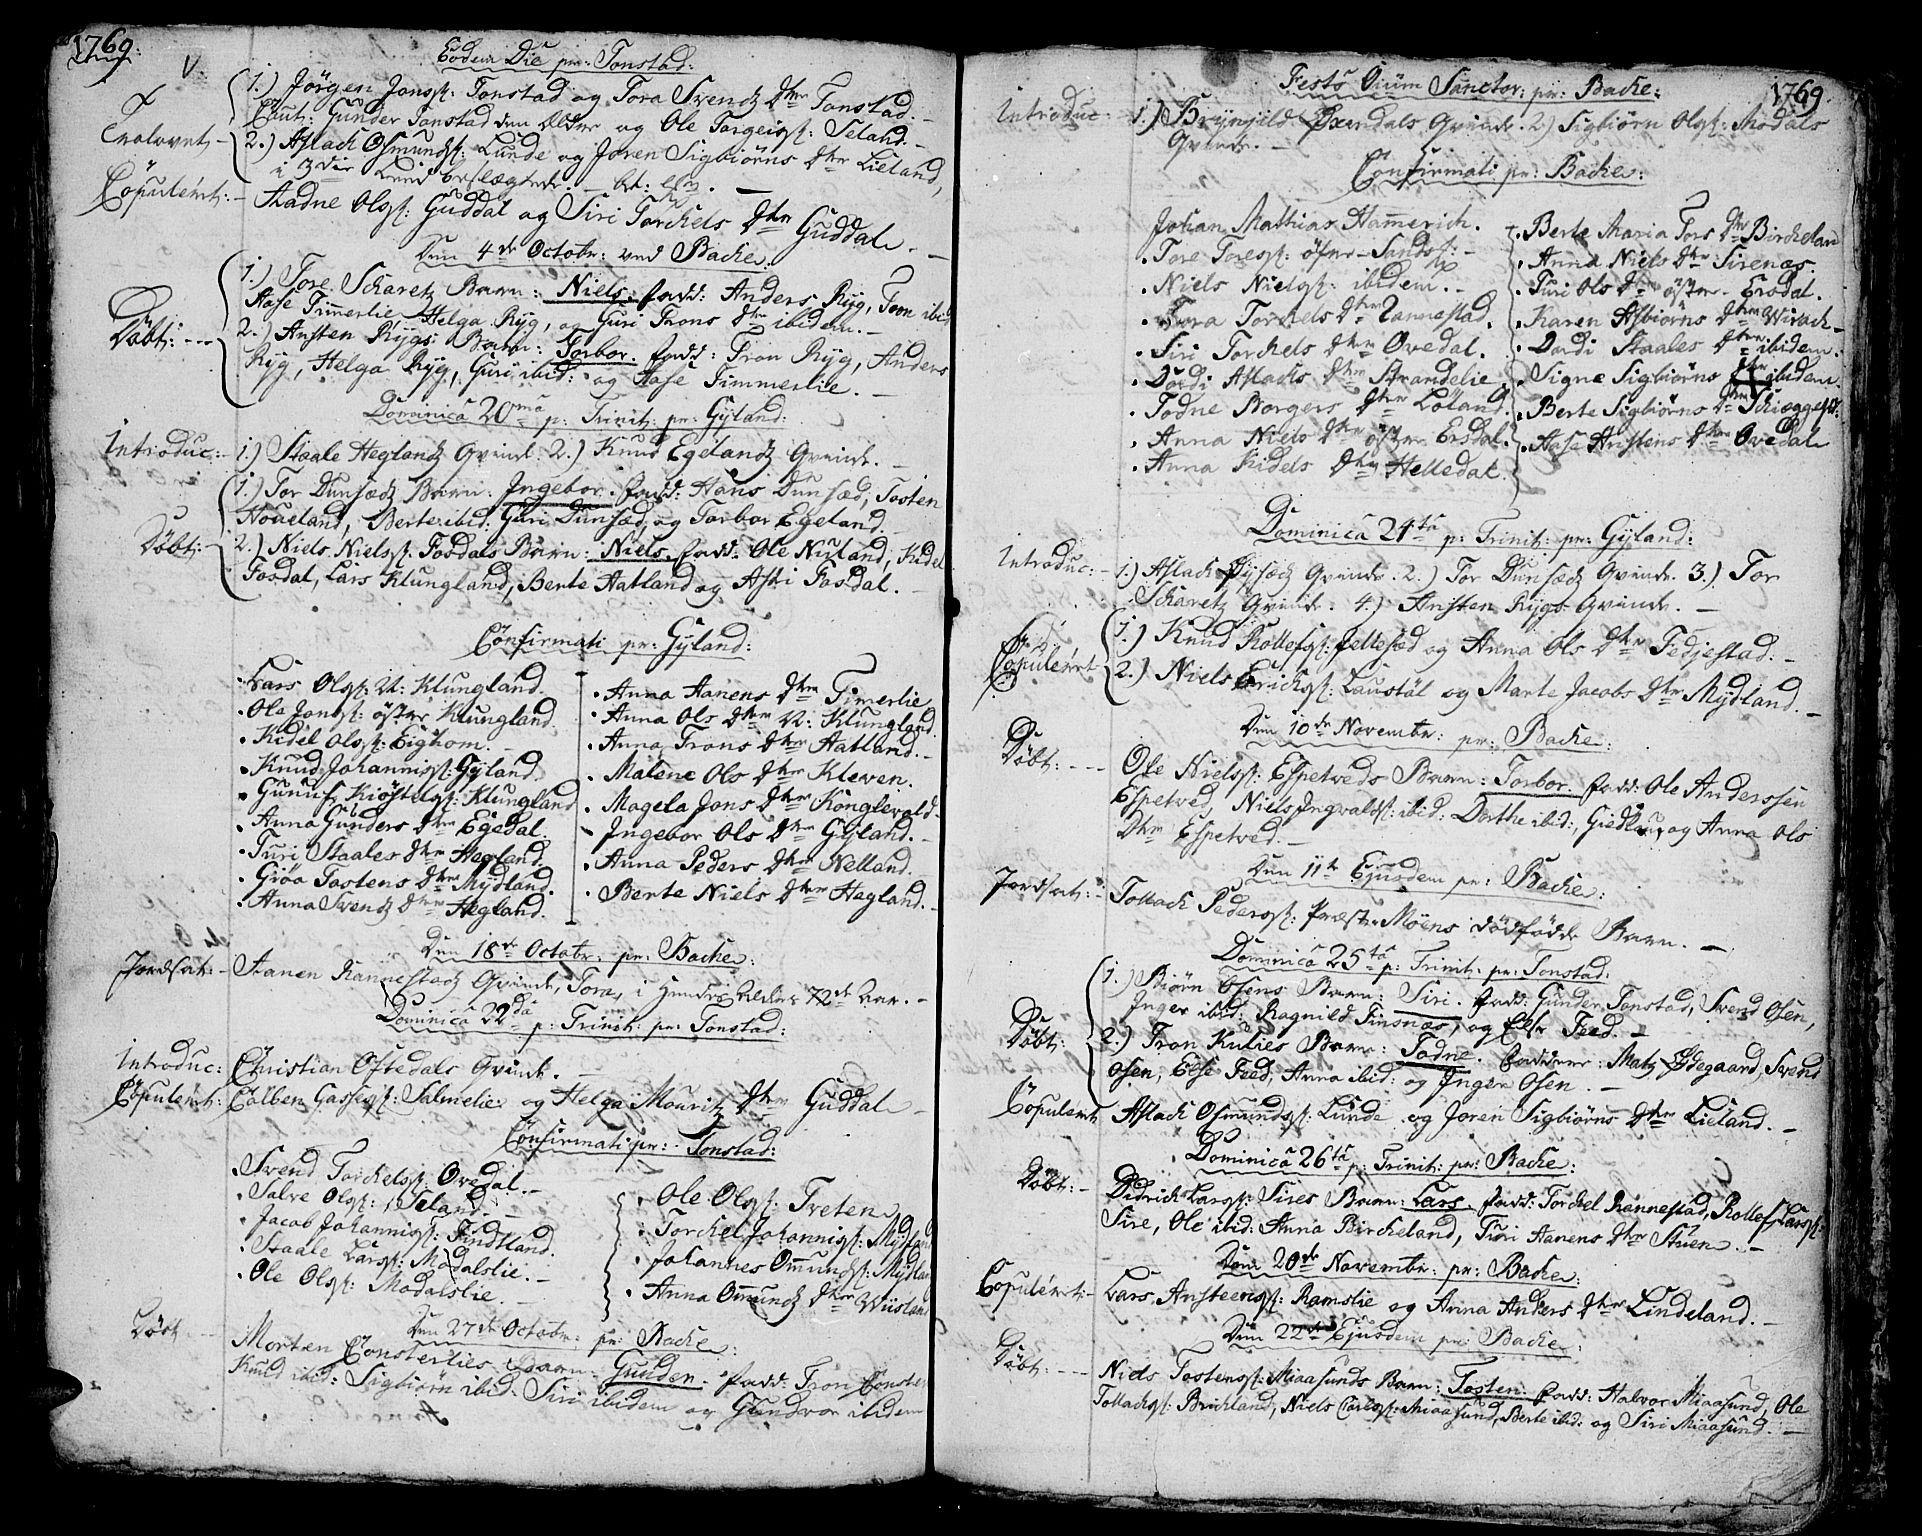 1769.
Eodem Die pr: Tonstad:
Trolovet - 1.) Jörgen Jonss: Tonstad og Tora Svends Dtr Tonstad. -
Caut: Gunder Tonstad den Ældre og Ole Torgeiss: Seland. -
2.) Aslack Osmundss: Lunde og Joren Sigbiörns Dtr Lieland,
i 3die Leed beslægtede. -
Copuleret: - Stadne Olss: Guddal og Siri Torckels Dtr Guddal. -
Den 4de Octobr: ved Backe:
Döbt: --- 1.) Tore Scharetz Barn: Niels. Fadd: Anders Ryg, Tron ibid
Aase Timmerlie, Helga Ryg, og Guri Trons Dtr ibidem. -
2.) Ansten Rygs Barn: Torbor. Fadd: Tron Ryg, Anders
Ryg, Helga Ryg, Guri ibid: og Aase Timmerlie. -
Dominica 20ma p: Trinit: pr: Gyland:
Introduc: - 1.) Staale Heglands Qvinde. 2.) Knud Egelands Qvinde. -
1.) Tor Dunsæds Barn: Ingebor. Fadd: Hans Dunsæd, Tosten
Houeland, Berte ibid: Guri Dunsæd og Torbor Egeland.
Döbt: - 2.) Niels Nielss: Fosdals Barn: Niels. Fadd: Ole Nuland, Kidel
Fosdal, Lars Klungland, Berte Hatland og Astri Fosdal. -
Confirmati pr: Gyland:
Lars Olss: N: Klungland.
Ole Jonss: östre Klungland.
Kidel Olss: Eighom. -
Knud Johanniss: Gyland
Gunuf Kiöstelss: Klungland
Anna Gunders Dtr Egedal.
Turi Staales Dtr Hegland.
Giöa Tostens Dtr Mydland.
Anna Svends Dtr Hegland.
Anna Aanens Dtr Timerlie
Anna Ols Dtr N: Klungland.
Anna Trons Dtr Hatland. -
Malene Ols Dtr Kleven.
Magela Jons Dtr Konglevold -
Ingebor Ols Dtr Gyland. -
Anna Peders Dtr Nelland. -
Berte Niels Dtr Hegland. -
Den 18de Octobr: pr: Backe:
Jordsat: - Aanen Rannestads Qvinde, Tora, i Hendes Alders 72de Aar. -
Dominica 22da p: Trinit: pr: Tonstad:
Introduc: Christian Oftedals Qvinde. -
Copuleret: Colben Gassess: Salmelie og Helga Mouritz Dtr Guddal -
Confirmati pr: Tonstad:
Svend Torckelss: Ovedal. -
Salve Olss: Seland. -
Jacob Johanniss: Findtland.
Staale Larss: Modalslie. -
Ole Olss: Modalslie. -
Ole Olss: Treten
Torckel Johanniss: Mydland
Johannes Omunds: Mydland
Anna Omunds Dtr Wiisland
Den 27de Octobr: pr: Backe:
Döbt -- Morten Consterlies Barn: Gunden. Fadd: Tron Conster
Knud ibid: Sigbiörn ibid: Siri ibidem og Gundvor ibidem
1769.
Festo Oium Sanctor: pr: Backe:
Introduc: 1.) Brynjild Öxendals Qvinde. 2.) Sigbiörn Olss: Modals
Qvinde. -
Confirmati pr: Backe:
Johan Mathias Hamerich.
Tore Toress: öfre Sands: -
Niels Nielss: ibidem. -
Tora Torckels Dtr Rannestad.
Siri Torckels Dtr Ovedal.
Dordi Aslacks Dtr Strandelie.
Todne Borgers Dtr Löland.
Anna Niels Dtr östre Ersdal.
Anna Kidels Dtr Helledal.
Berte Maria Tors Dtr Birckeland
Anna Niels Dtr Sirenæs.
Turi Ols Dtr östre Ersdal.
Karen Asbiörns Dtr Wirack -
Dordi Staales Dtr ibidem.
Signe Sigbiörns Dtr ibidem
Berte Sigbiörns Dtr Schieggest:
Aase Anstens Dtr Ovedal
Dominica 24ta p: Trinit: pr: Gyland:
Introduc: - 1.) Aslack Pysæds Qvinde. 2.) Tor Dunsæds Qvinde. 3.) Tor
Scharetz Qvinde. 4.) Ansten Rygs Qvinde. -
Copuleret 1.) Knud Rollefss: Jellesæd og Anna Ols Dtr Fedjestad: -
2.) Niels Erichss: Laustöl og Marte Jacobs Dtr Mydland. -
Den 10de Novembr: pr: Backe:
Döbt: --- Ole Nielss: Espetveds Barn: Torbor. Fadd: Ole Anderssen
Espetved, Niels Ingvalds: ibid: Dorthe ibid:, Giedlaug og Anna Ols
Dtr Espetved. -
Den 11te Ejusdem pr: Backe:
Jordsat: - Tollack Pederss: Præst-Möens dödfödde Barn. -
Dominica 25ta p: Trinit: pr: Tonstad:
Döbt: 1.) Biörn Osens Barn: Siri. Fadd: Gunder Tonstad, Svend Osen,
Inger ibid: Ragnild Finsnæs, og Else Feed. -
2.) Tron Kulies Barn: Todne. Faddere: Matz Ödegaard, Svend
Osen, Else Feed, Anna ibid: og Inger Osen. -
Copuleret Aslack Osmundss: Lunde og Joren Sigbiörns Dtr Lieland. -
Dominica 26ta p: Trinit: pr: Backe:
Döbt: - Didrich Larss: Sires Barn: Lars. Fadd: Torckel Rannestad, Rollef Larss:
Sire, Ole ibid: Anna Birckeland, Turi Aanens Dtr Stuen. -
Den 20de Novembr: pr: Backe:
Copuleret: - Lars Ansteenss: Ramslie og Anna Anders Dtr Lindeland. -
Den 22de Ejusdem pr: Backe:
Döbt: -- Niels Tostenss: Miaasunds Barn: Tosten: Fadd: Halvor Miaasund, Ole
Tollackss: Birckland, Niels Carlss: Miaasund, Berte ibid: og Siri Miaasund. -